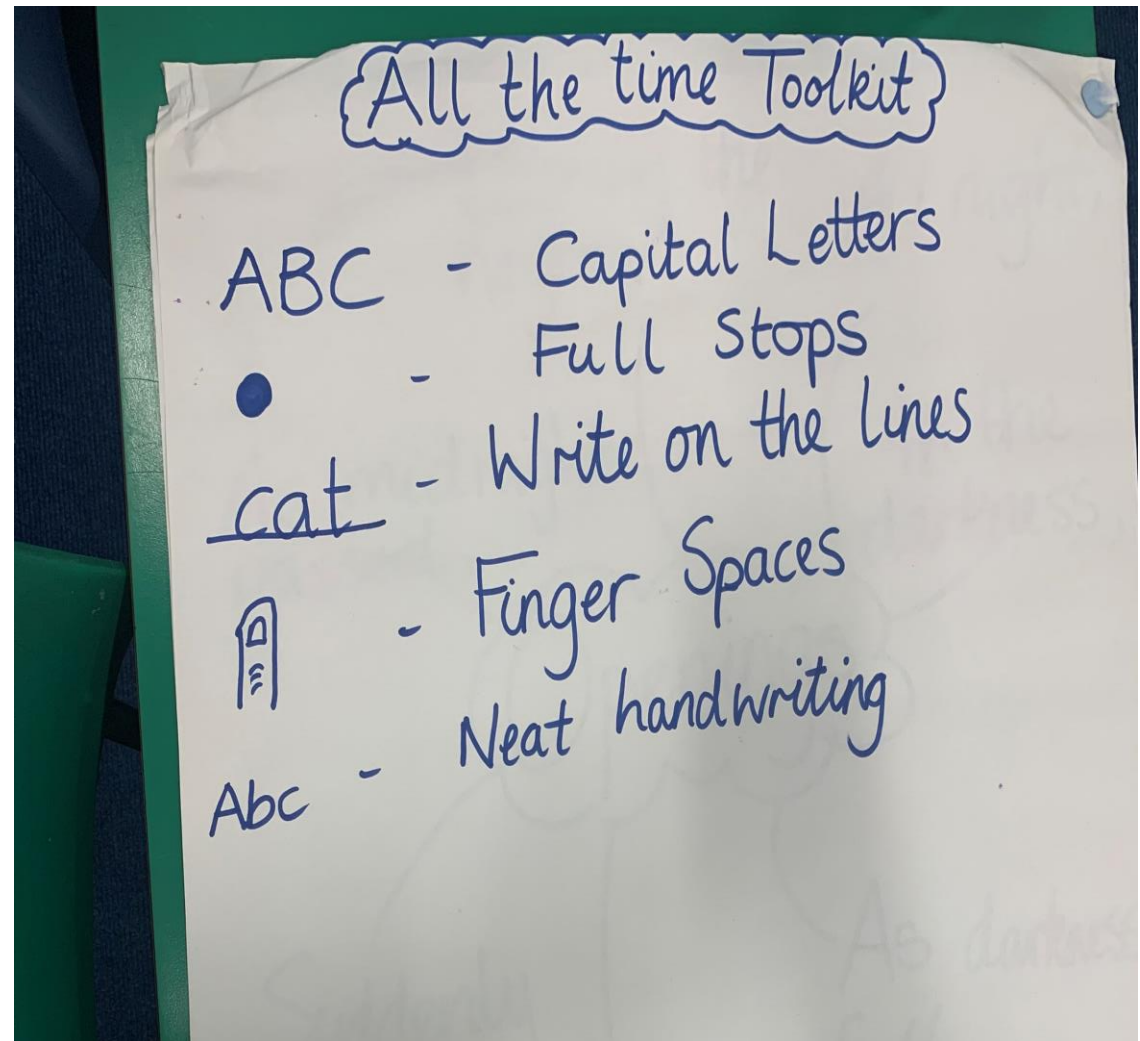 All the time Toolkit
ABC - Capital Letters
- Full Stops
cat - Write on the lines
- Finger Spaces
Abc - Neat handwriting
As darkness
Suddenly